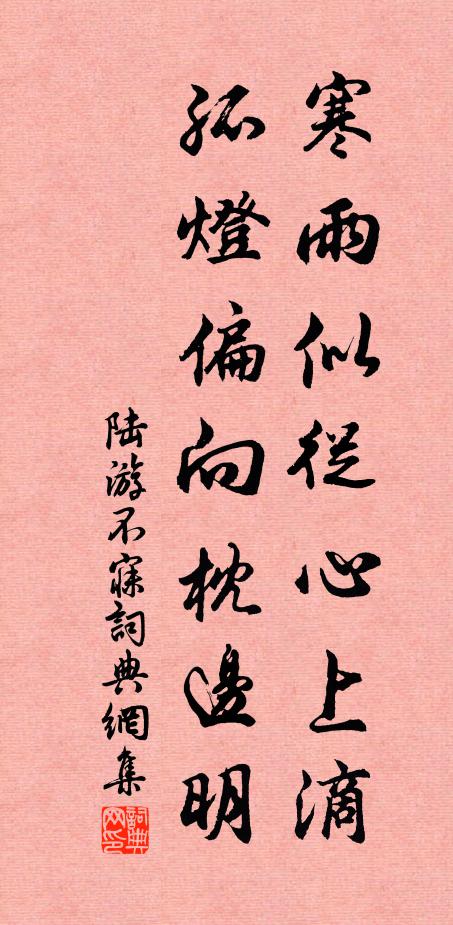 寒雨似從心上滴
孤燈偏向枕邊明
陆游不寐詞典網集
詞典
网印